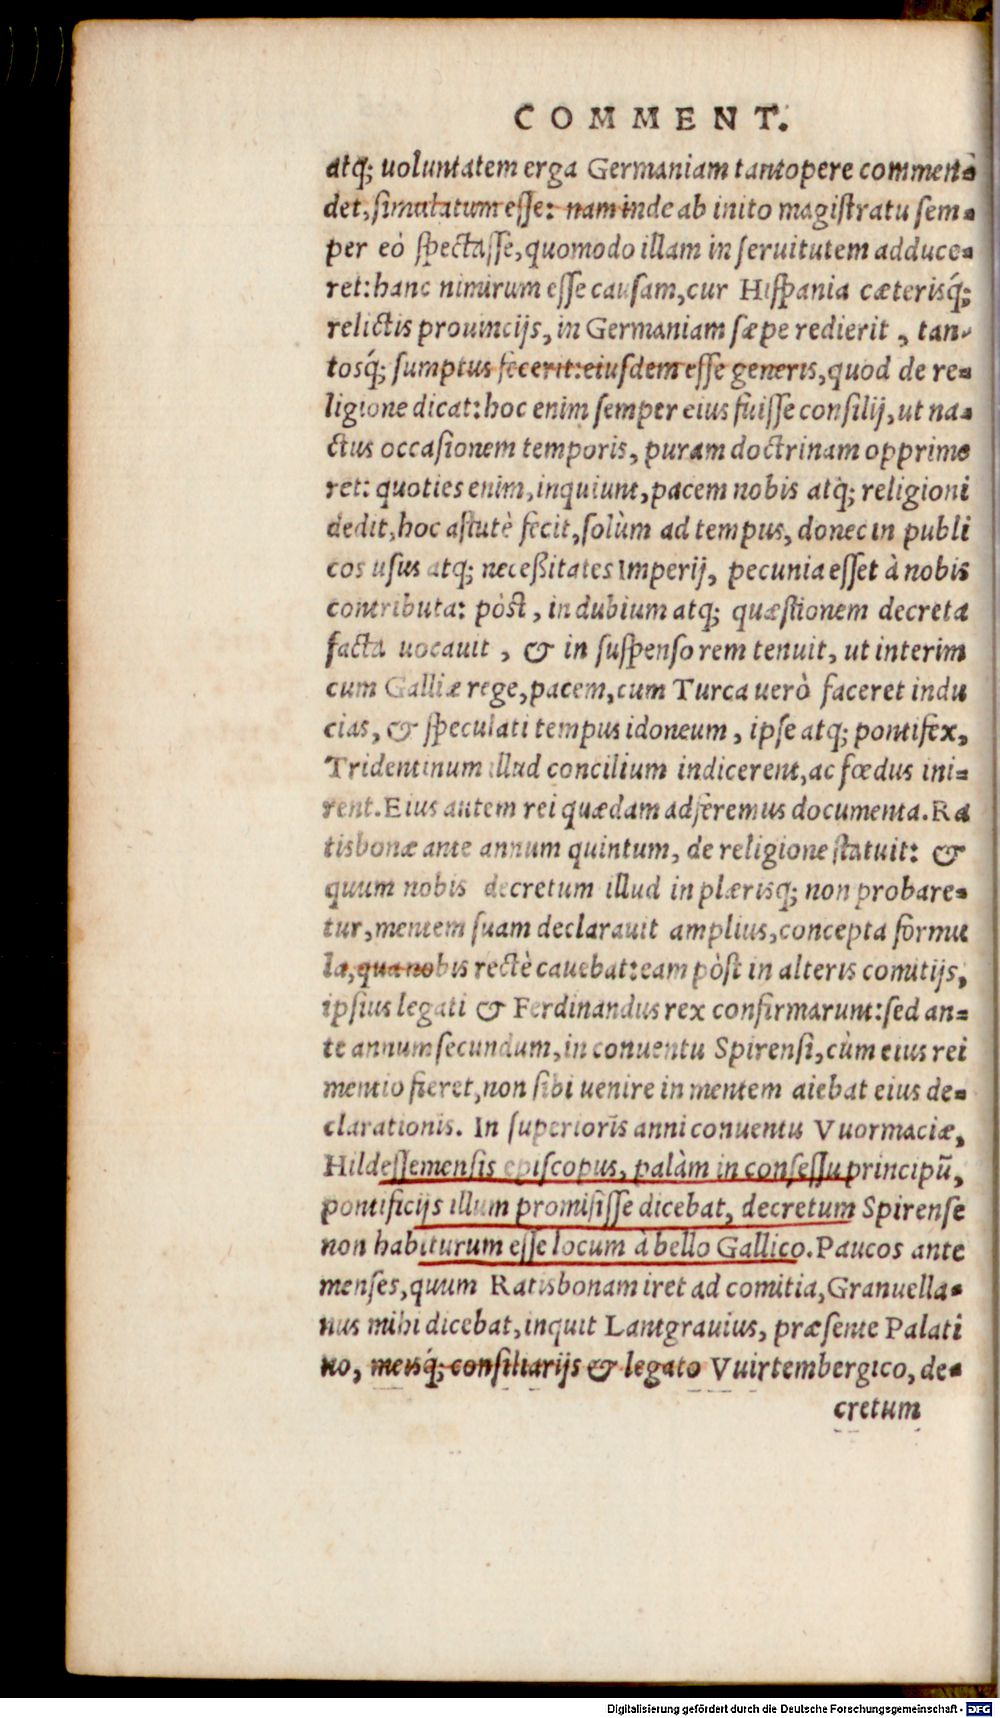 COMMENT.
atq; uoluntatem erga Germaniam tantopere commen-
det, simulatum esse: nam inde ab inito magistratu sem=
per eò spectasse, quomodo illam in seruitutem adduce=
ret: hanc nimirum esse causam, cur Hispania cæterisq́;
relictis prouincijs, in Germaniam sæpe redierit, tan-
tosq́; sumptus fecerit: eiusdem esse generis, quod de re=
ligione dicat: hoc enim semper eius fuisse consilij, ut na=
ctus occasionem temporis, puram doctrinam opprime
ret: quoties enim, inquiunt, pacem nobis atq; religioni
dedit, hoc astutè fecit, solùm ad tempus, donec in publi
cos usus atq; neceßitates Imperij, pecunia esset à nobis
contributa: pòst, in dubium atq; quæstionem decreta
facta uocauit, & in suspenso rem tenuit, ut interim
cum Galliæ rege, pacem, cum Turca uerò faceret indu
cias, & speculati tempus idoneum, ipse atq; pontifex,
Tridentinum illud concilium indicerent, ac fœdus ini=
rent. Eius autem rei quædam adferemus documenta. Ra
tisbonæ ante annum quintum, de religione statuit: &
quum nobis decretum illud in plærisq; non probare=
tur, mentem suam declarauit amplius, concepta formu
la, qua nobis rectè cauebat: eam pòst in alteris comitijs,
ipsius legati & Ferdinandus rex confirmarunt: sed an=
te annum secundum, in conuentu Spirensi, cùm eius rei
mentio fieret, non sibi uenire in mentem aiebat eius de=
clarationis. In superioris anni conuentu Vuormaciæ,
Hildessemensis episcopus, palàm in consessu principū,
pontificijs illum promisisse dicebat, decretum Spirense
non habiturum esse locum à bello Gallico. Paucos ante
menses, quum Ratisbonam iret ad comitia, Granuella=
nus mihi dicebat, inquit Lantgrauius, præsente Palati
no, meisq́; consiliarijs & legato Vuirtembergico, de=
cretum
Digitalisierung gefördert durch die Deutsche Forschungsgemeinschaft - DFG